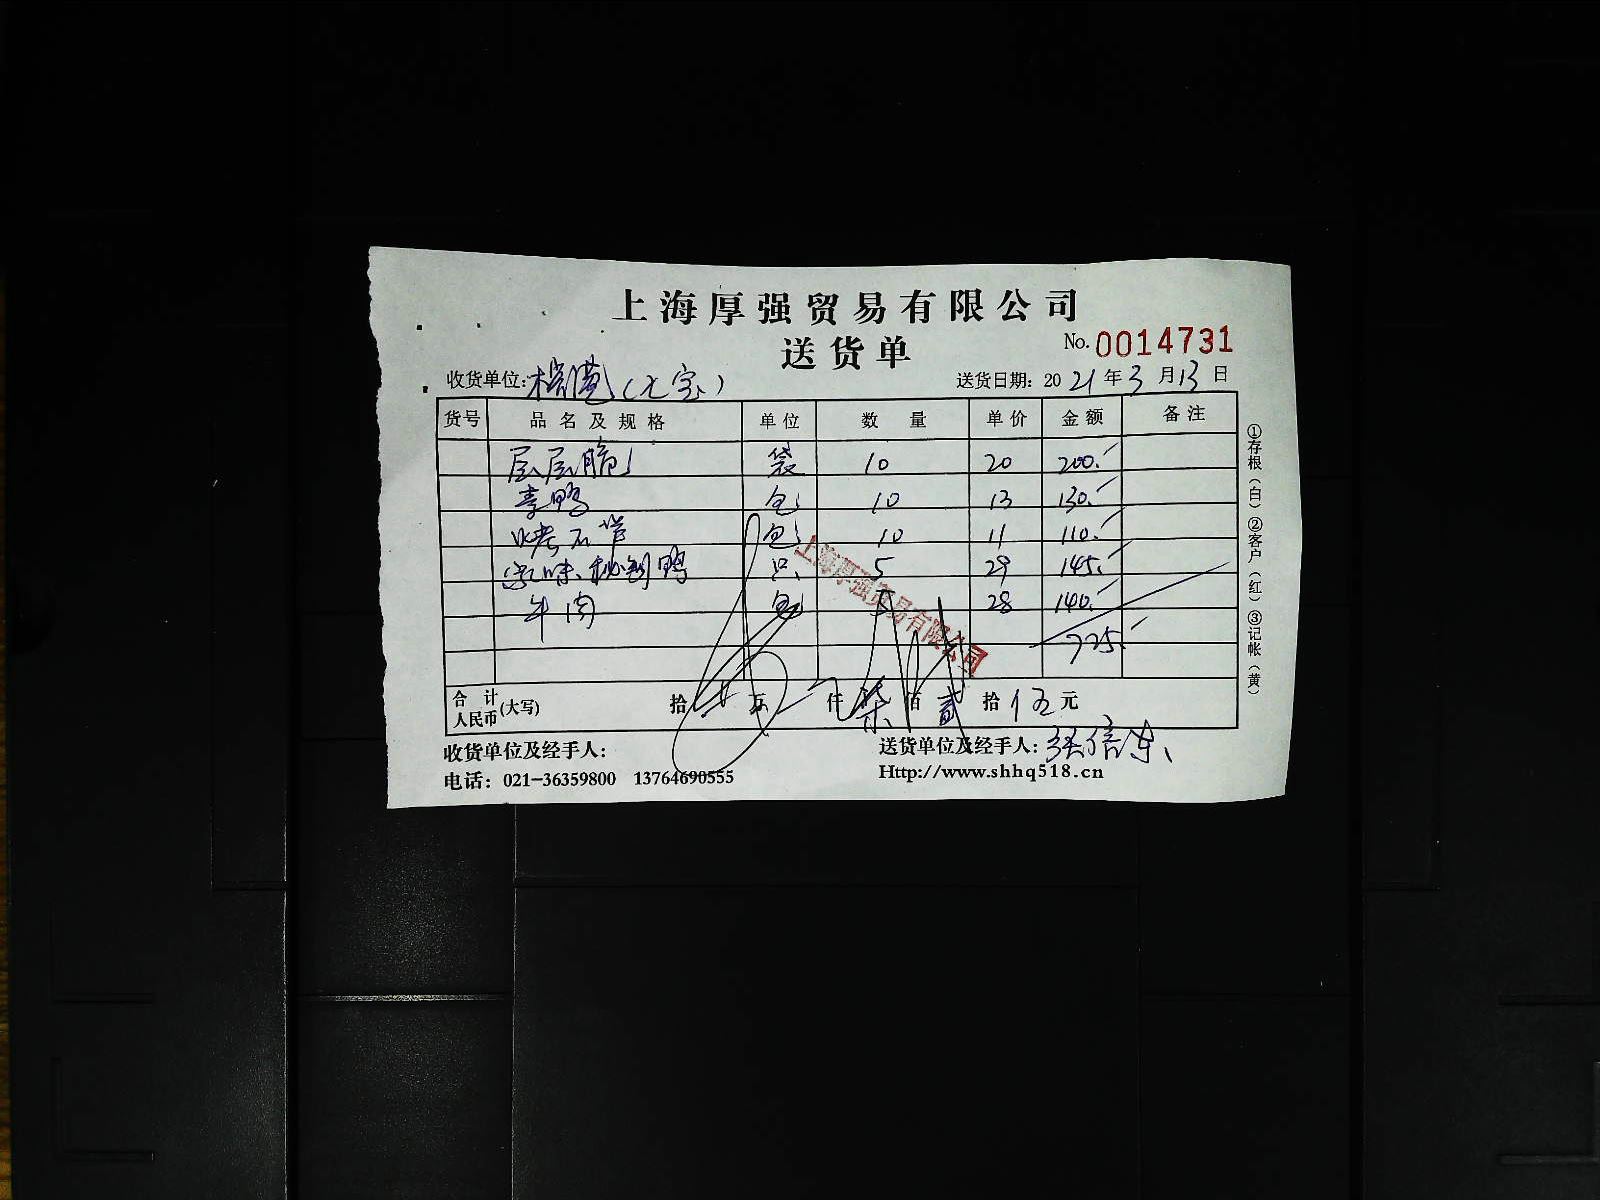 上海厚强贸易有限公司
送货单
No. 0014731
收货单位: (七宝)
送货日期: 2021年3月13日
货号 品名及规格 单位 数量 单价 金额 备注
层层脆 袋 10 20 200.
青鸭 包 10 13 130.
包 10 11 110.
秘制鸭 只 5 29 145.
牛肉 包 5 28 140.
725.
合计人民币(大写) 拾 万 仟 柒 佰 贰 拾 伍 元
收货单位及经手人:
送货单位及经手人:
电话: 021-36359800 13764690555
Http://www.shhq518.cn
①存根(白)②客户(红)③记帐(黄)
上海厚强贸易有限公司